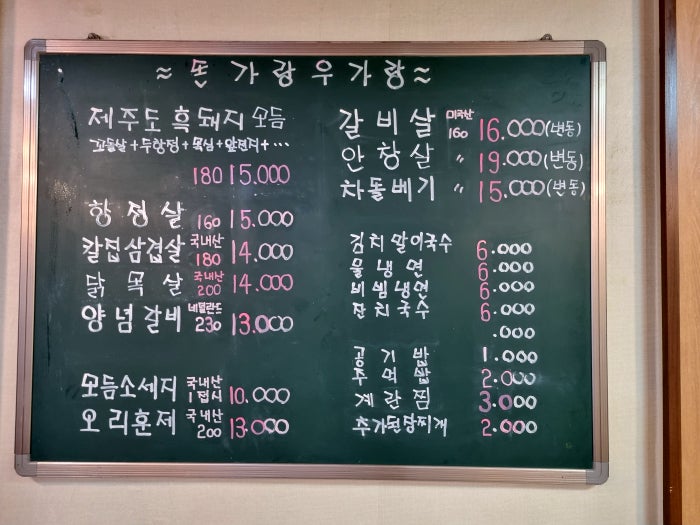 ≈ 돈 가랑우가랑 ≈
제주도 흑돼지 모듬
꼬들살+두항정+목심+앞다리+...
180 15.000
항정살 160 15.000
칼집삼겹살 국내산 180 14.000
닭목살 국내산 200 14.000
양념갈비 네덜란드 230 13.000
모듬소세지 국내산 1접시 10.000
오리훈제 국내산 200 13.000
갈비살 미국산 160 16.000(변동)
안창살 〃 19.000(변동)
차돌베기 〃 15.000(변동)
김치말이국수 6.000
물냉면 6.000
비빔냉면 6.000
잔치국수 6.000
.000
공기밥 1.000
주먹밥 2.000
계란찜 3.000
추가된장찌개 2.000